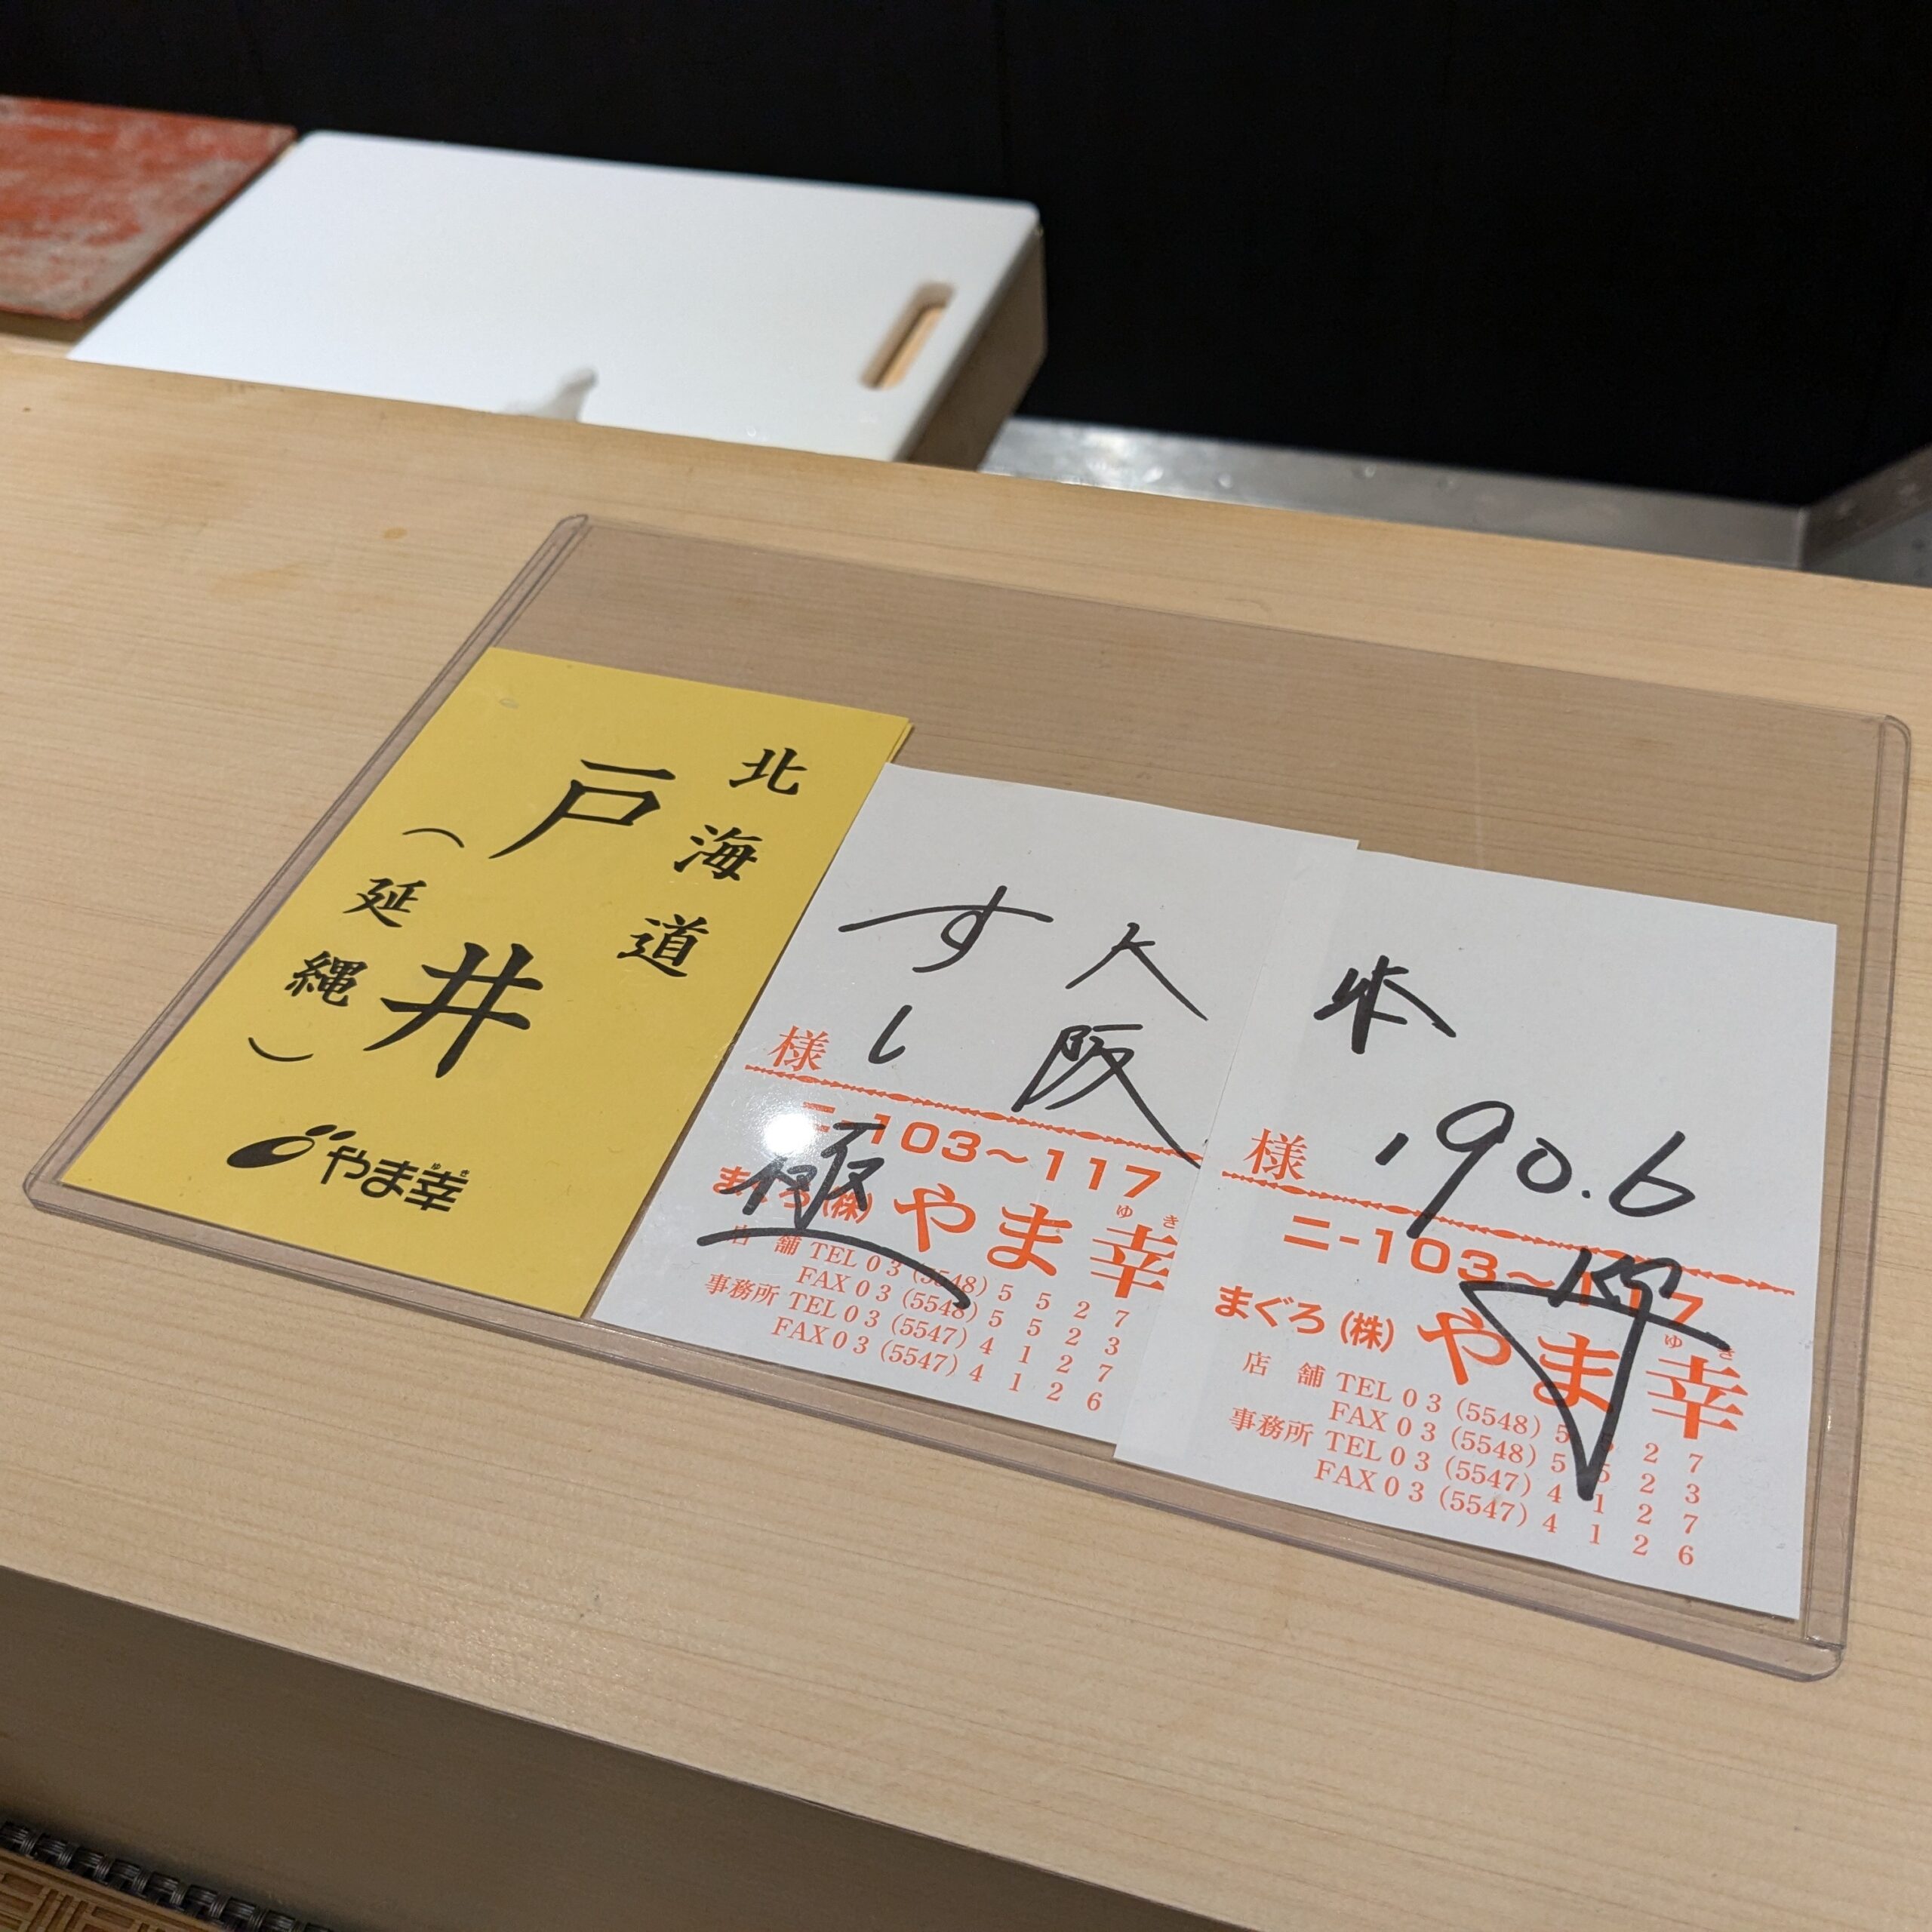 北海道
戸井
（延縄）
やま幸
ゆき
大阪
すし
極
様
ニ-103～117
まぐろ(株)やま幸
ゆき
店舗 TEL 03 (5548) 5527
FAX 03 (5548) 5523
事務所 TEL 03 (5547) 4127
FAX 03 (5547) 4126
190.6
様
ニ-103～117
まぐろ(株)やま幸
ゆき
店舗 TEL 03 (5548) 5527
FAX 03 (5548) 5523
事務所 TEL 03 (5547) 4127
FAX 03 (5547) 4126